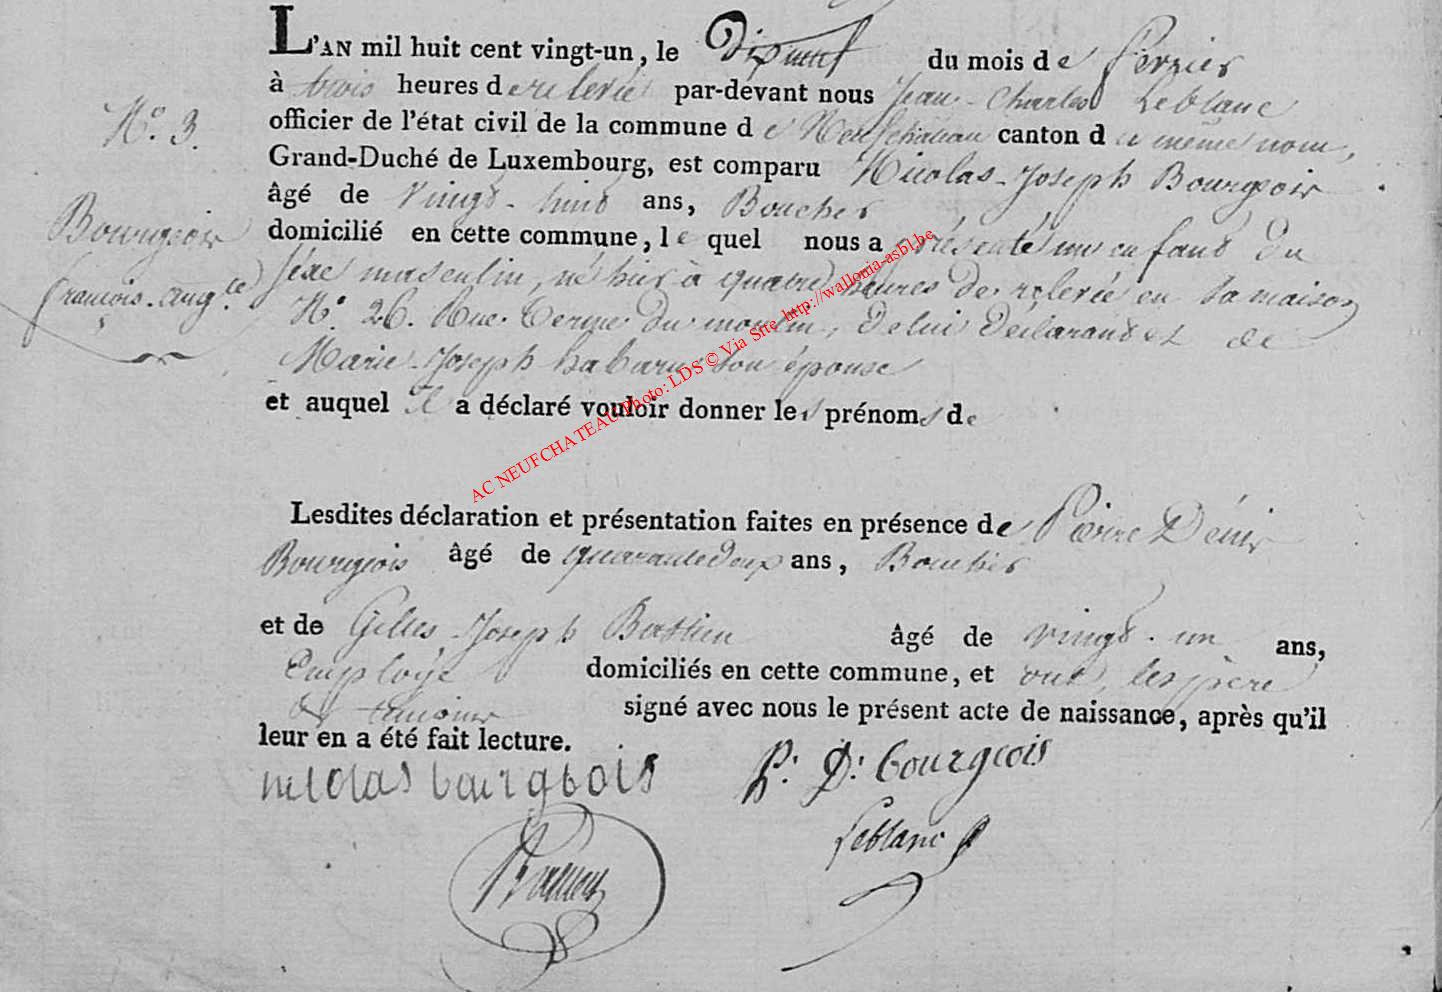 L'AN mil huit cent vingt-un, le Dixneuf du mois de Fevrier
à trois heures de relevée par-devant nous Jean-Charles Leblanc
officier de l'état civil de la commune de Neufchateau canton du même nom,
N.° 3.
Grand-Duché de Luxembourg, est comparu Nicolas-Joseph Bourgeois
âgé de vingt-huit ans, Boucher
Bourgeois
domicilié en cette commune, lequel nous a présenté un enfant du
François-Aug.te
sexe masculin, né hier à quatre heures de relevée en sa maison
N.° 26. Rue du moulin, de lui déclarant et de
Marie-Joseph son épouse
et auquel il a déclaré vouloir donner les prénoms de
Lesdites déclaration et présentation faites en présence de Pierre Dénis
Bourgeois âgé de quarante deux ans, Boucher
et de Gilles-Joseph âgé de vingt-un ans,
Employé domiciliés en cette commune, et ont, les père
et témoins signé avec nous le présent acte de naissance, après qu'il
leur en a été fait lecture.
nicolas bourgeois P: D: bourgeois
Leblanc
AC NEUFCHATEAU Photo: LDS © Via Site http://wallonia-asbl.be